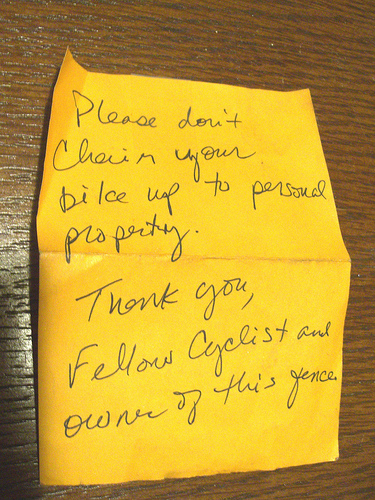 Please don't
Chain your
bike up to personal
property.
Thank you,
Fellow Cyclist and
owner of this fence